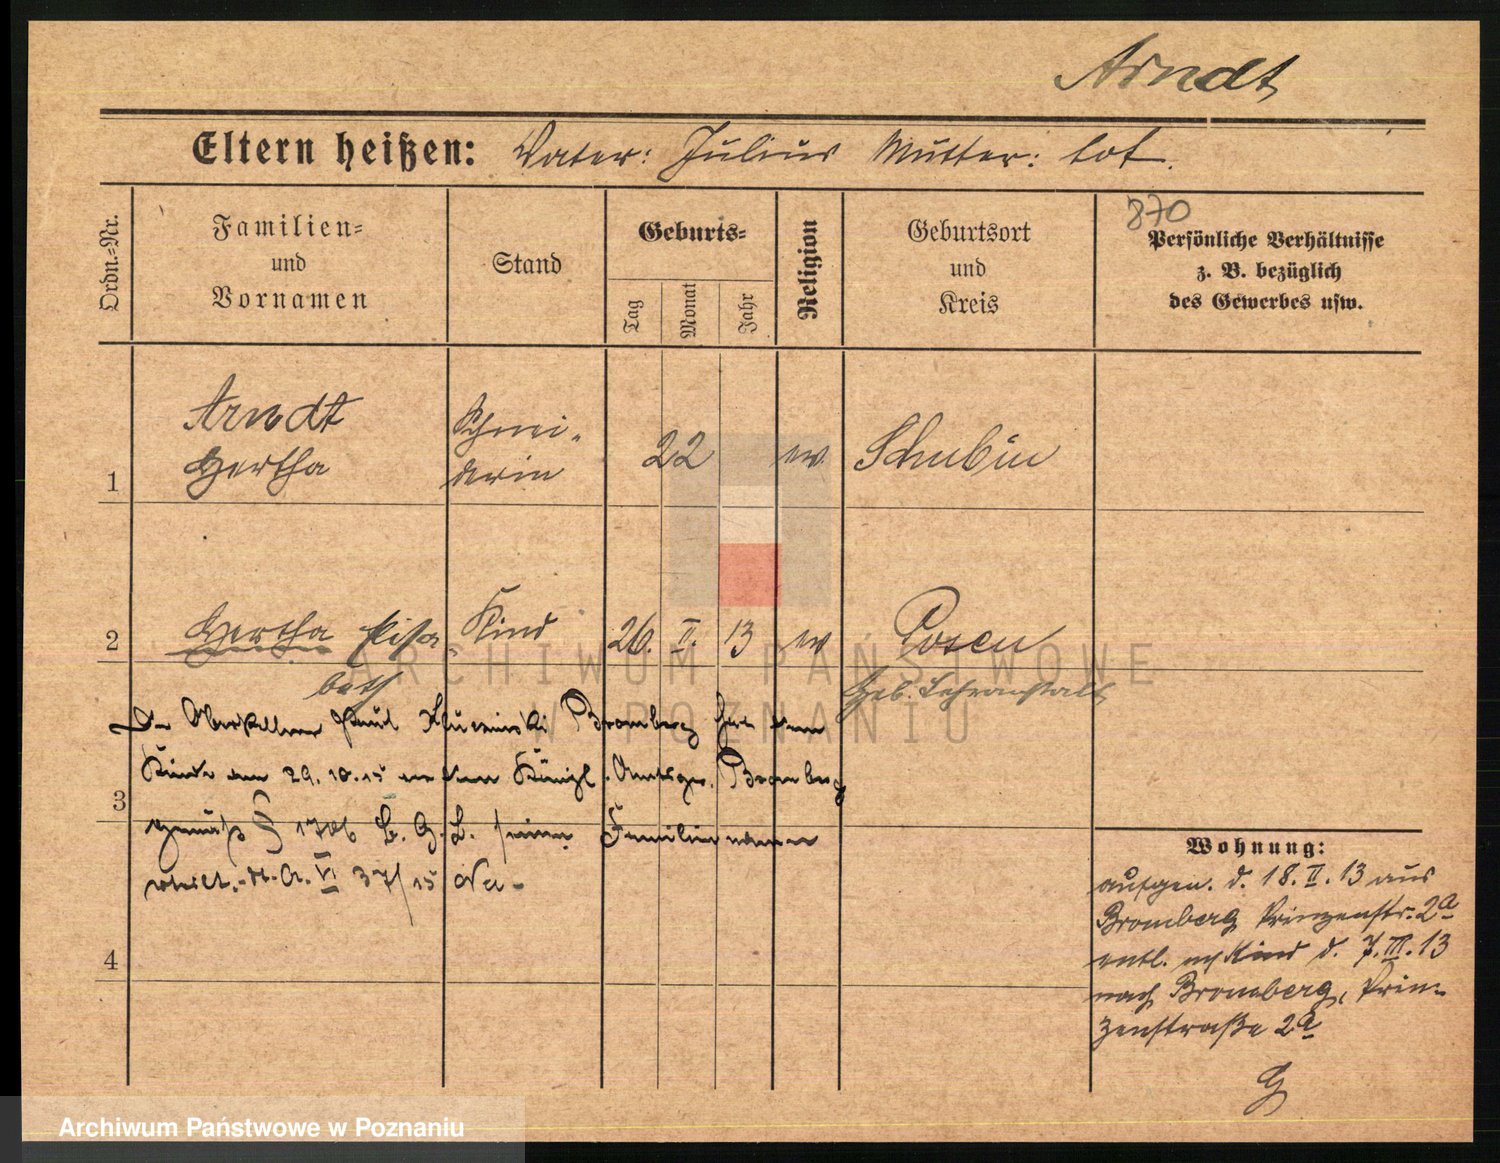 Arndt
Eltern heißen: Vater: Julius Mutter: tot.
870
Ordn.-Nr.
Familien= und Vornamen
Stand
Geburts=
Tag
Monat
Jahr
Religion
Geburtsort und Kreis
Persönliche Verhältnisse
z. B. bezüglich
des Gewerbes usw.
1
Arndt
Hertha
Schnei-
derin
22
ev
Schubin
2
Hertha Elisa-
beth
Kind
26. II. 13
ev
Posen
Geb. Lehranstalt
Der Oberkellner Paul Bromberg hat dem
Kinde am 29.10.15 Königl. Amtsger. Bromberg
3
gemäß § 1706 B. G. B. seinen Familiennamen
erteilt. VI 37/15
4
Wohnung:
aufgen. d. 18. II. 13 aus
Bromberg Prinzenstr. 2a
entl. Kind d. 7. III. 13
nach Bromberg, Prin-
zenstraße 2a
ARCHIWUM PAŃSTWOWE
W POZNANIU
Archiwum Państwowe w Poznaniu